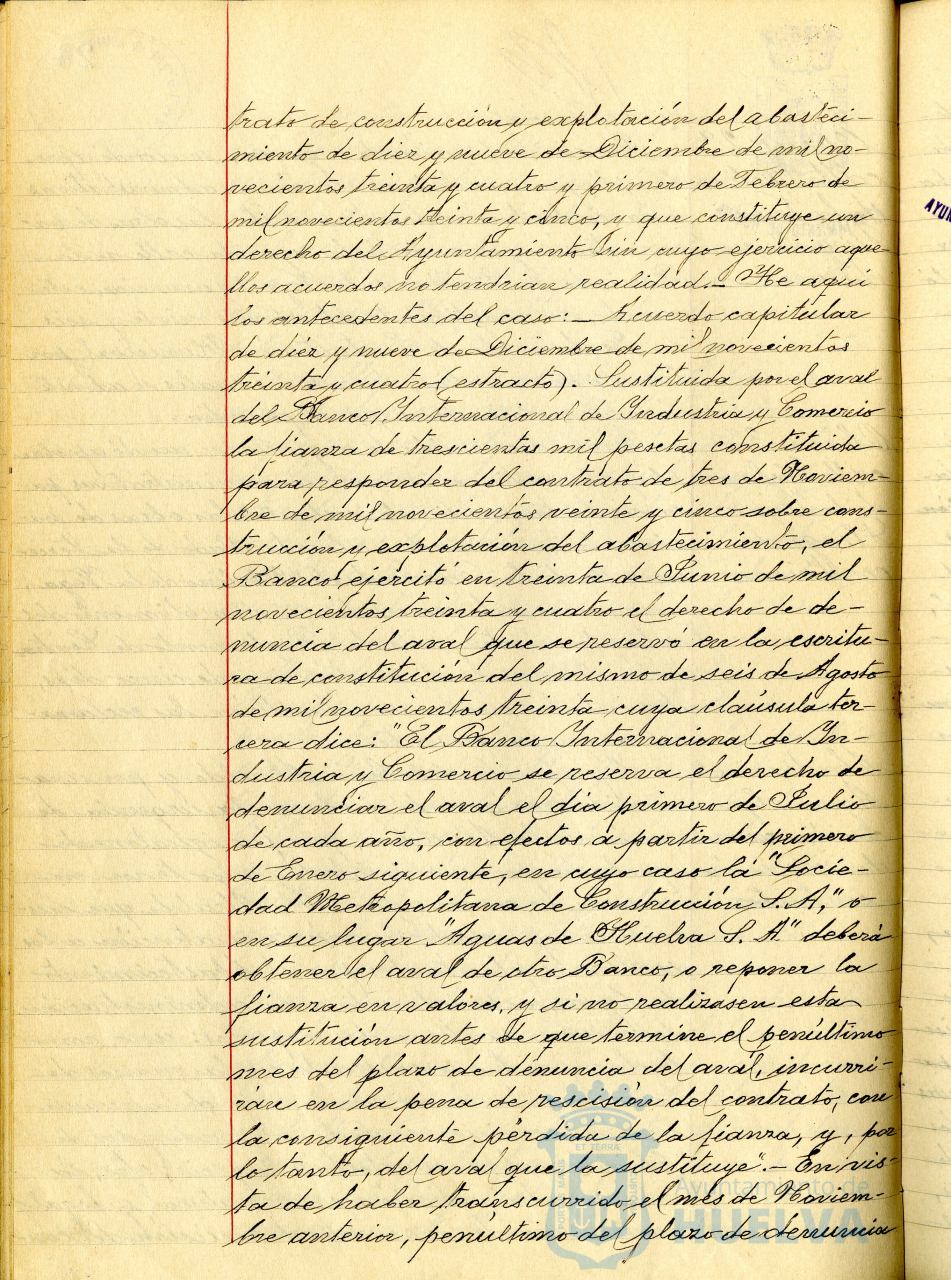 trato de construcción y explotación del abasteci-
miento de diez y nueve de Diciembre de mil no-
vecientos treinta y cuatro y primero de Febrero de
mil novecientos treinta y cinco, y que constituye un
derecho del Ayuntamiento sin cuyo ejercicio aque-
llos acuerdos no tendrian realidad.- He aquí
los antecedentes del caso:- Acuerdo capitular
de diéz y nueve de Diciembre de mil novecientos
treinta y cuatro (estracto). Sustituida por el aval
del Banco Internacional de Industria y Comercio
la fianza de trescientas mil pesetas constituida
para responder del contrato de tres de Noviem-
bre de mil novecientos veinte y cinco sobre cons-
trucción y explotación del abastecimiento, el
Banco ejércitó en treinta de Junio de mil
novecientos treinta y cuatro el derecho de de-
nuncia del aval que se reservó en la escritu-
ra de constitución del mismo de seis de Agosto
de mil novecientos treinta cuya claúsula ter-
cera dice: "El Banco Internacional de In-
dustria y Comercio se reserva el derecho de
denunciar el aval el dia primero de Julio
de cada año, con efectos a partir del primero
de Enero siguiente, en cuyo caso la "Socie-
dad Metropolitana de Construcción S.A," o
en su lugar "Aguas de Huelva S. A." deberá
obtener el aval de otro Banco, o reponer la
fianza en valores, y si no realizasen esta
sustitución antes de que termine el penúltimo
mes del plazo de denuncia del aval, incurri-
rán en la pena de rescisión del contrato, con
la consiguiente pérdida de la fianza, y, por
lo tanto, del aval que la sustituye".- En vis-
ta de haber transcurrido el mes de Noviem-
bre anterior, penúltimo del plazo de denuncia
Ayuntamiento de
HUELVA